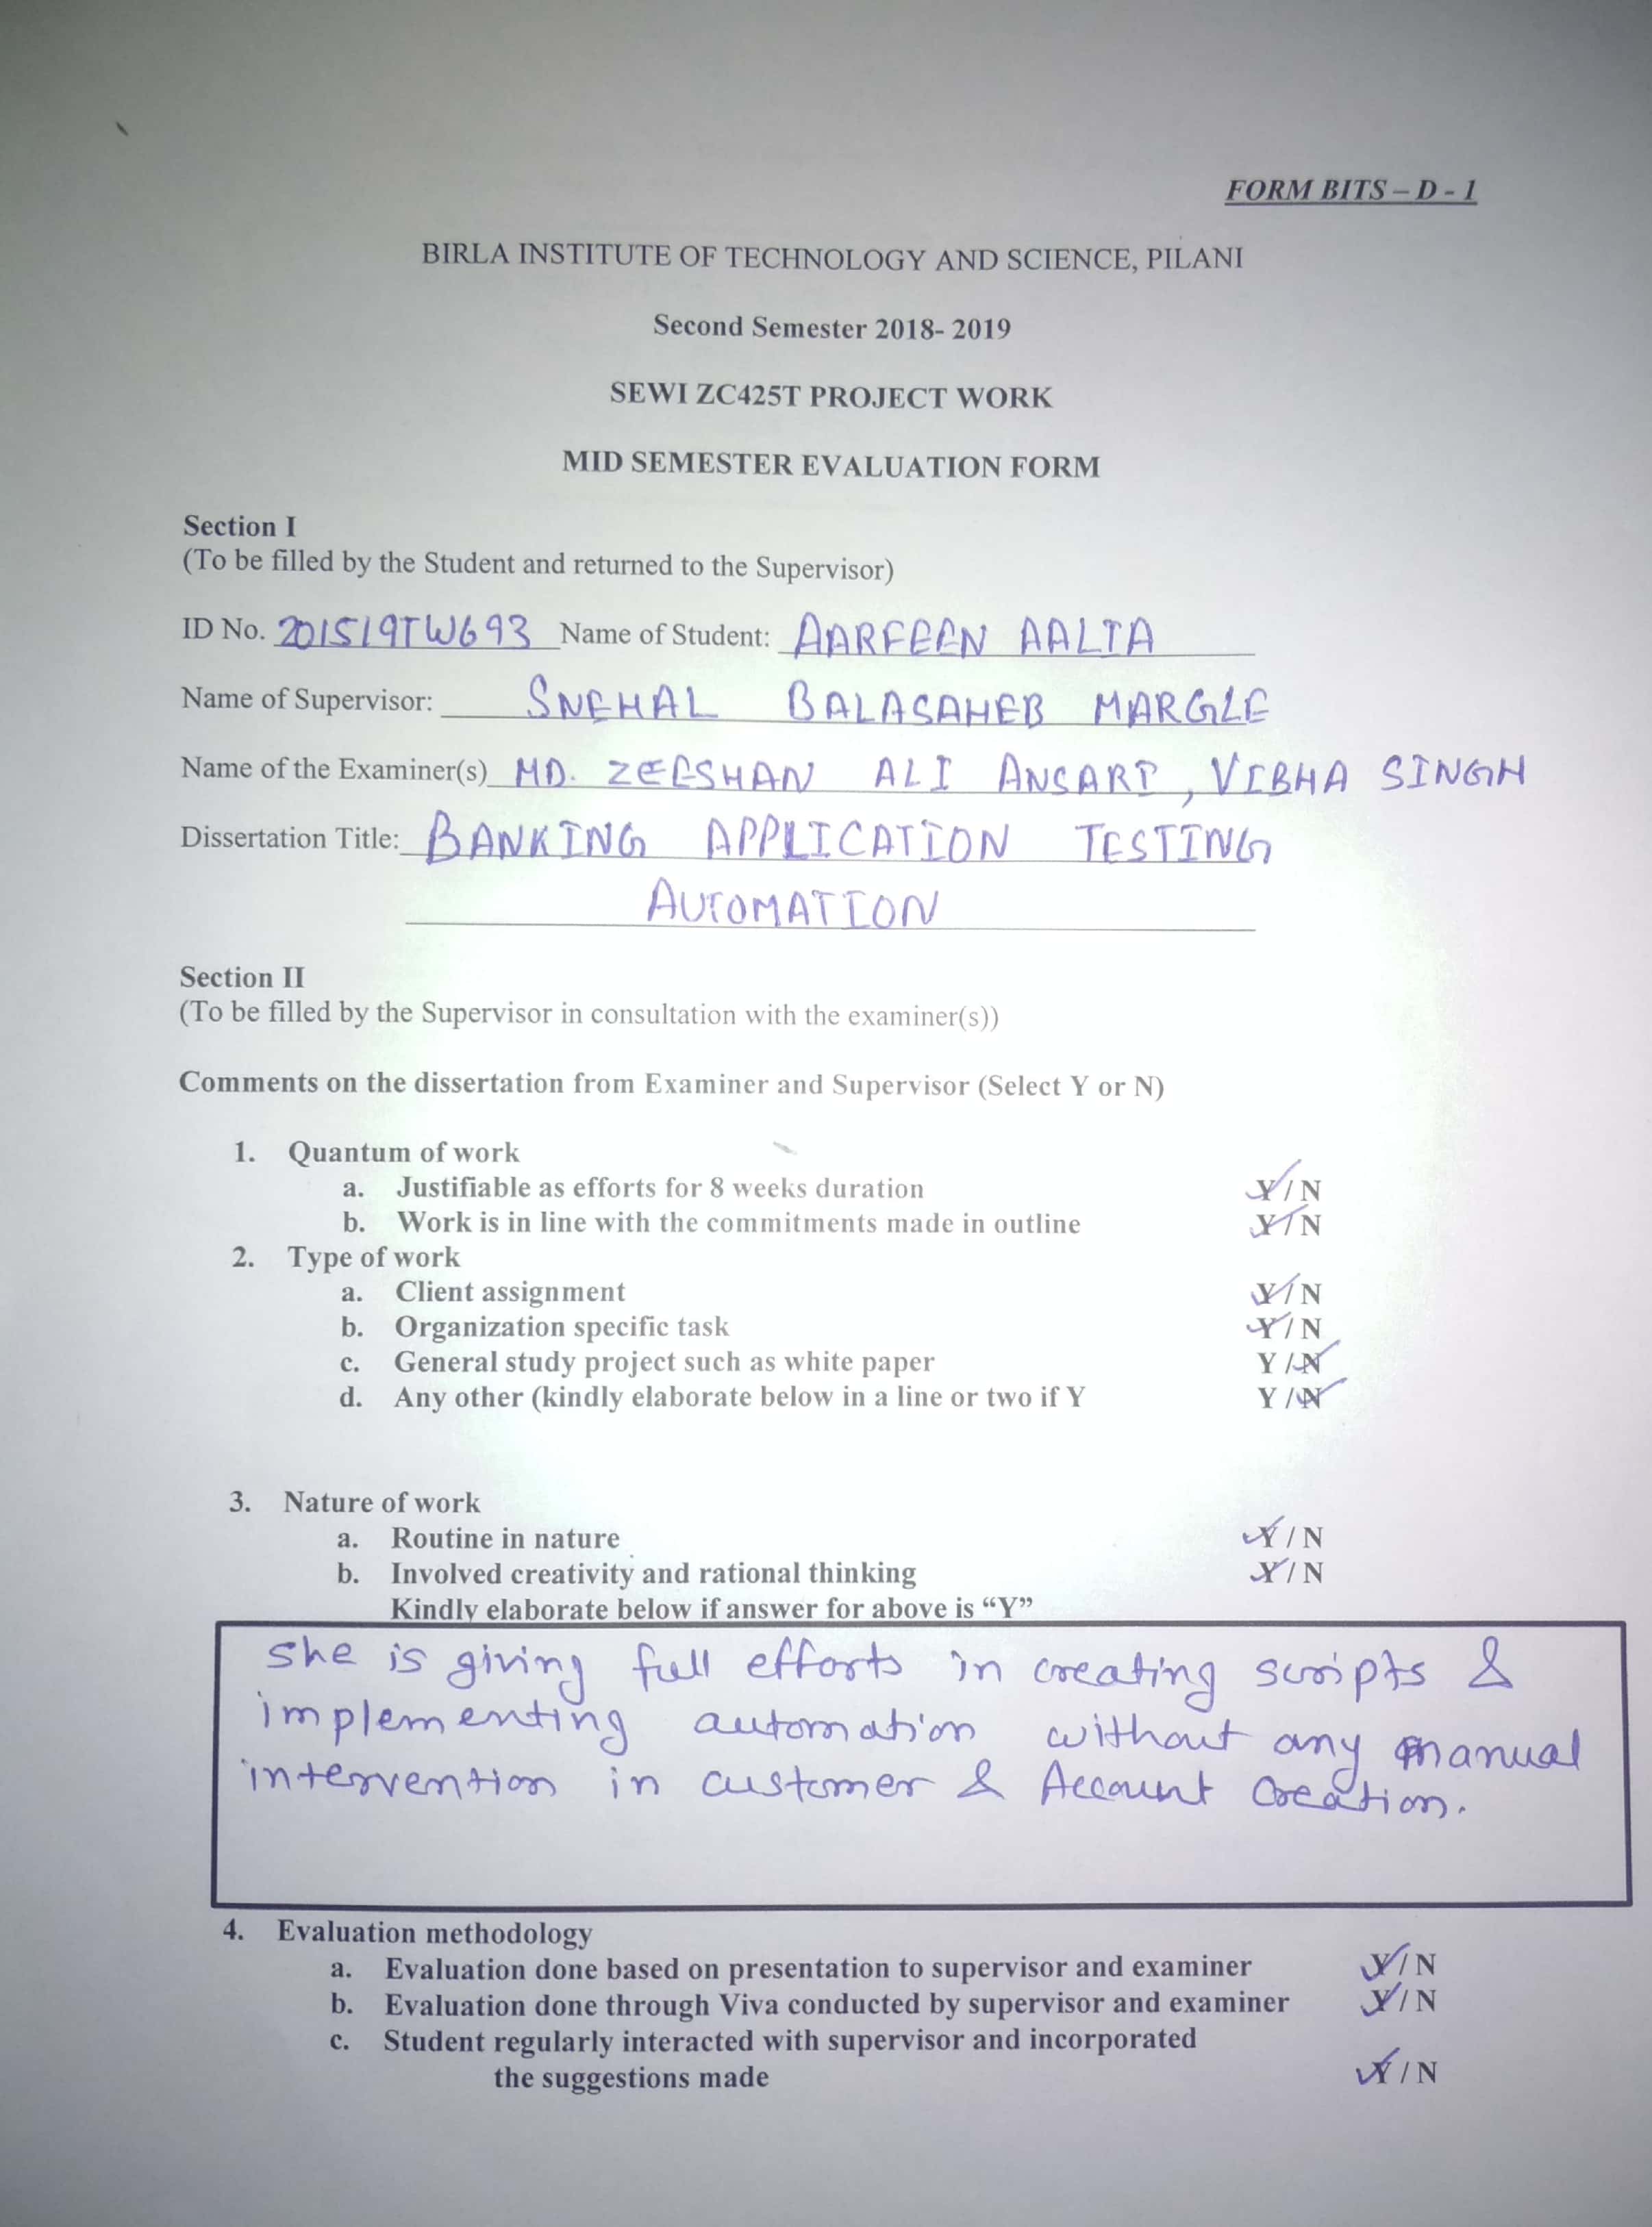 FORM BITS – D - 1
BIRLA INSTITUTE OF TECHNOLOGY AND SCIENCE, PILANI
Second Semester 2018- 2019
SEWI ZC425T PROJECT WORK
MID SEMESTER EVALUATION FORM
Section I
(To be filled by the Student and returned to the Supervisor)
ID No. 201519TW693 Name of Student: AARFEEN AALIA
Name of Supervisor: SNEHAL BALASAHEB MARGLE
Name of the Examiner(s) MD. ZEESHAN ALI ANSARI, VIBHA SINGH
Dissertation Title: BANKING APPLICATION TESTING
AUTOMATION
Section II
(To be filled by the Supervisor in consultation with the examiner(s))
Comments on the dissertation from Examiner and Supervisor (Select Y or N)
1. Quantum of work
a. Justifiable as efforts for 8 weeks duration Y / N
b. Work is in line with the commitments made in outline Y / N
2. Type of work
a. Client assignment Y / N
b. Organization specific task Y / N
c. General study project such as white paper Y / N
d. Any other (kindly elaborate below in a line or two if Y Y / N
3. Nature of work
a. Routine in nature Y / N
b. Involved creativity and rational thinking Y / N
Kindly elaborate below if answer for above is “Y”
She is giving full efforts in creating scripts &
implementing automation without any manual
intervention in customer & Account Creation.
4. Evaluation methodology
a. Evaluation done based on presentation to supervisor and examiner Y / N
b. Evaluation done through Viva conducted by supervisor and examiner Y / N
c. Student regularly interacted with supervisor and incorporated
the suggestions made Y / N